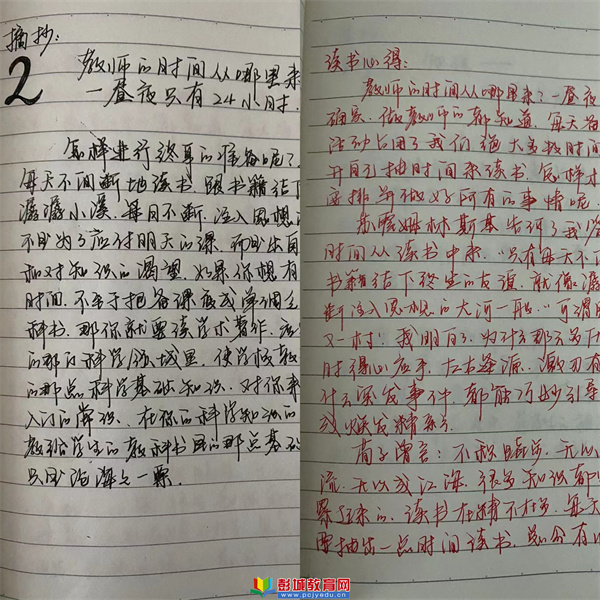 摘抄:
2
教师的时间从哪里来
一昼夜只有24小时.
怎样进行终身的准备呢?
每天不间断地读书,跟书籍结下
潺潺小溪,每日不断,注入思想
不是为了应付明天的课,而是出自
和对知识的渴望.如果你想有
时间,不至于把备课变成单调乏
科书.那你就要读学术著作.应
的那门科学领域里,使学校教
的那点科学基础知识,对你来
入门的常识.在你的科学知识的
教给学生的教科书里的那点基础
只是沧海之一粟.
读书心得:
教师的时间从哪里来?一昼夜
确实,做教师的都知道,每天备
活动占用了我们绝大多数时间
再自己抽时间来读书.怎样才
安排并做好所有的事情呢.
苏霍姆林斯基告诉了我
时间从读书中来."只有每天不
书籍结下终生的友谊.就像潺
断注入思想的大河一般."可谓
又一村.我明白了为什么那么多
时得心应手,左右逢源.激动有
什么突发事件,都能巧妙引导
或爆发精彩
荀子曾言:不积跬步,无以
流,无以成江海.很多知识都
累起来的.读书在精不在多.每天
要抽出一点时间读书.总会有
彭城教育网
www.pcjyedu.cn